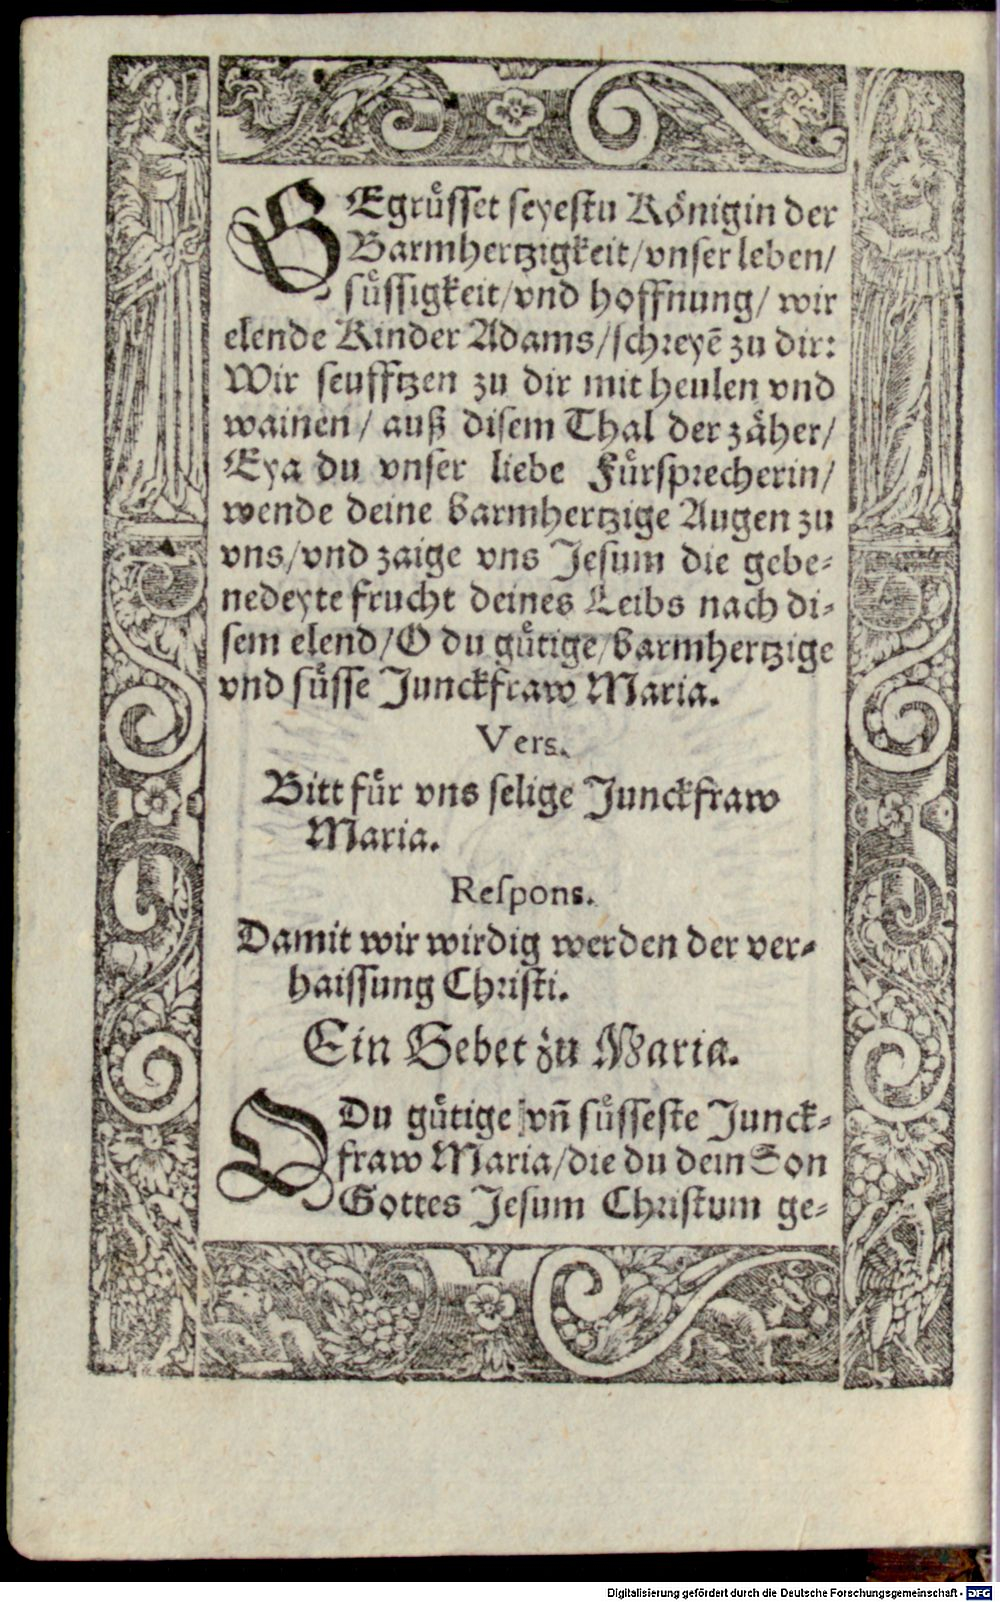 GEgrüsset seyestu Königin der
Barmhertzigkeit/vnser leben/
süssigkeit/vnd hoffnung/ wir
elende Kinder Adams/schreyẽ zu dir:
Wir seufftzen zu dir mit heulen vnd
wainen/ auß disem Thal der zäher/
Eya du vnser liebe Fürsprecherin/
wende deine barmhertzige Augen zu
vns/vnd zaige vns Jesum die gebe-
nedeyte frucht deines Leibs nach di-
sem elend/O du gütige/barmhertzige
vnd süsse Junckfraw Maria.
Vers.
Bitt für vns selige Junckfraw
Maria.
Respons.
Damit wir wirdig werden der ver-
haissung Christi.
Ein Gebet zu Maria.
O Du gütige vñ süsseste Junck-
fraw Maria/die du dein Son
Gottes Jesum Christum ge-
Digitalisierung gefördert durch die Deutsche Forschungsgemeinschaft - DFG